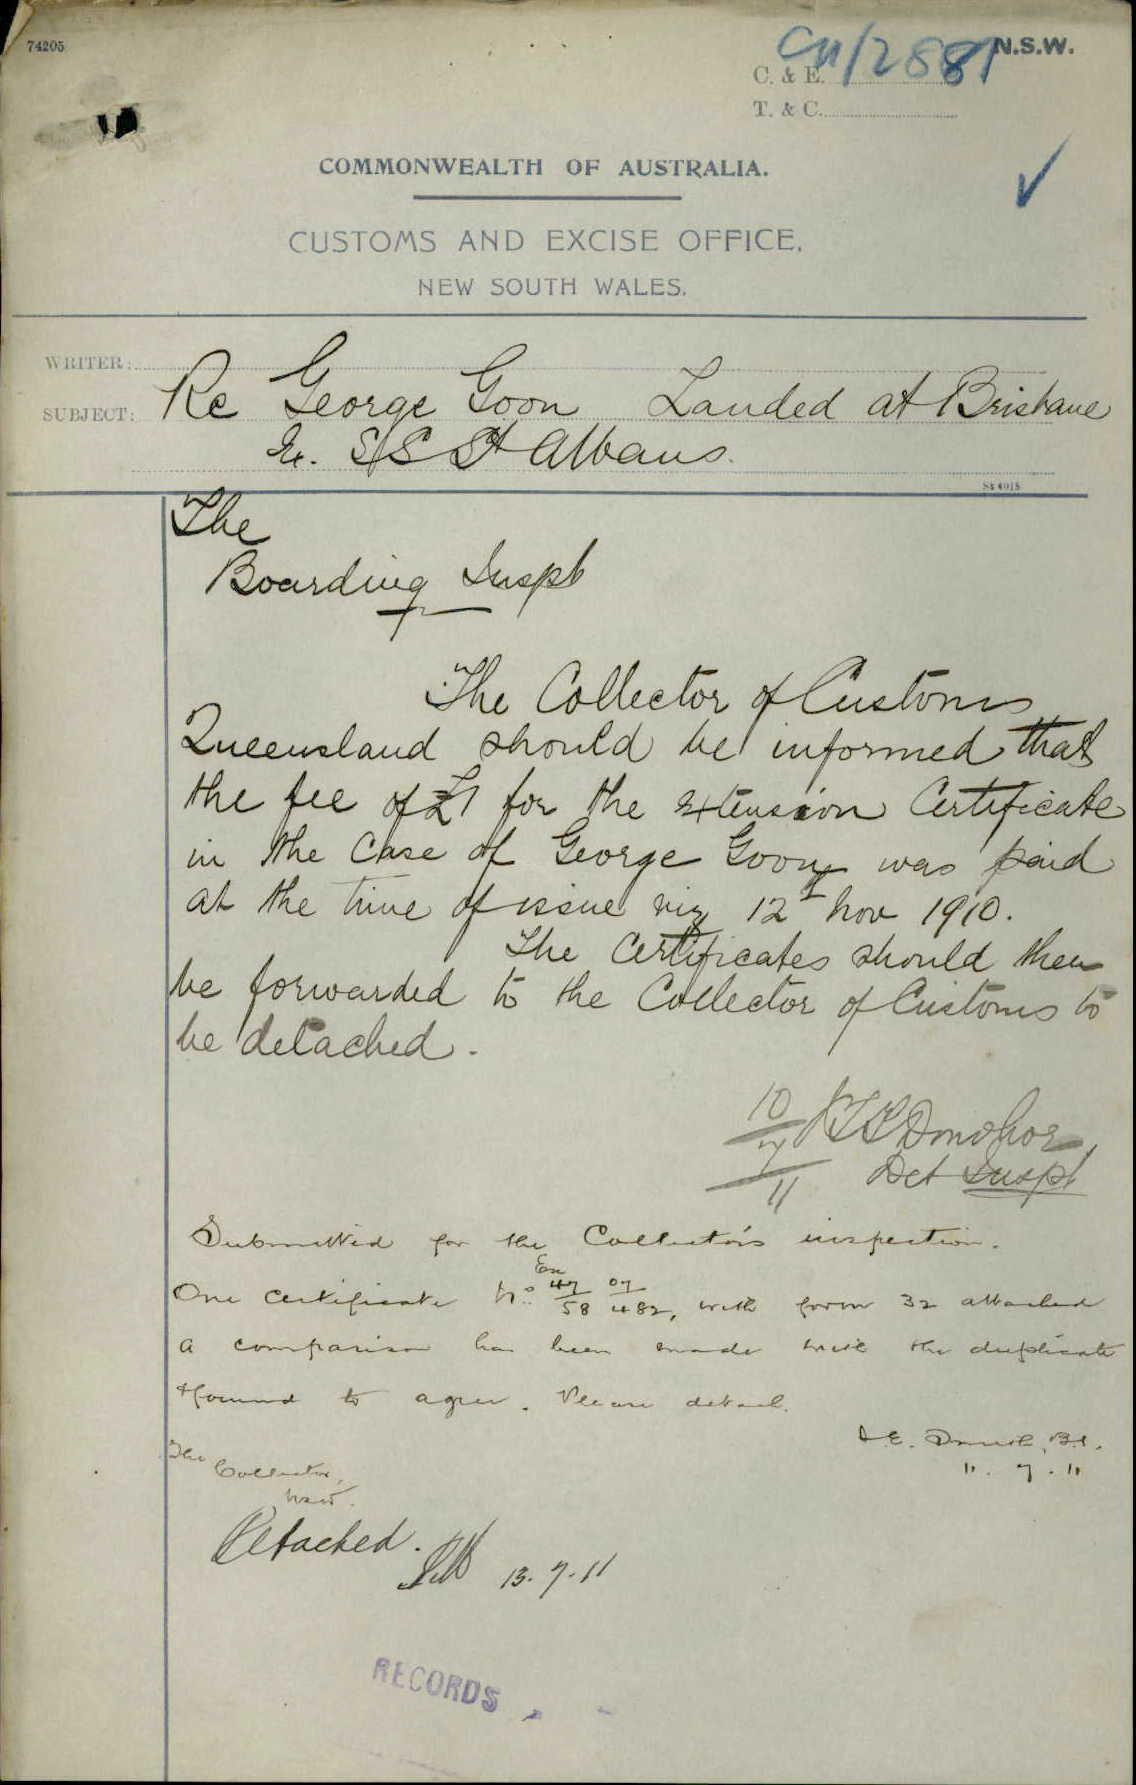 74205
N.S.W.
C11/2881
C. & E.
T. & C.
COMMONWEALTH OF AUSTRALIA.
CUSTOMS AND EXCISE OFFICE,
NEW SOUTH WALES.
WRITER:
SUBJECT: Re George Goon Landed at Brisbane
Ex. S/S St Albans.
The
Boarding Inspt
The Collector of Customs
Queensland should be informed that
the fee of £1 for the extension Certificate
in the case of George Goon was paid
at the time of issue viz 12th Nov 1910.
The Certificates should then
be forwarded to the Collector of Customs to
be detached.
10/7/11 Donohoe
Det Inspt
Submitted for the Collector's inspection.
One Certificate No. Ex 47/58 07/482, with form 32 attached
a comparison has been made with the duplicate
& found to agree. Please detach.
B.I.
11.7.11
The Collector,
NSW.
Detached.
13.7.11
RECORDS